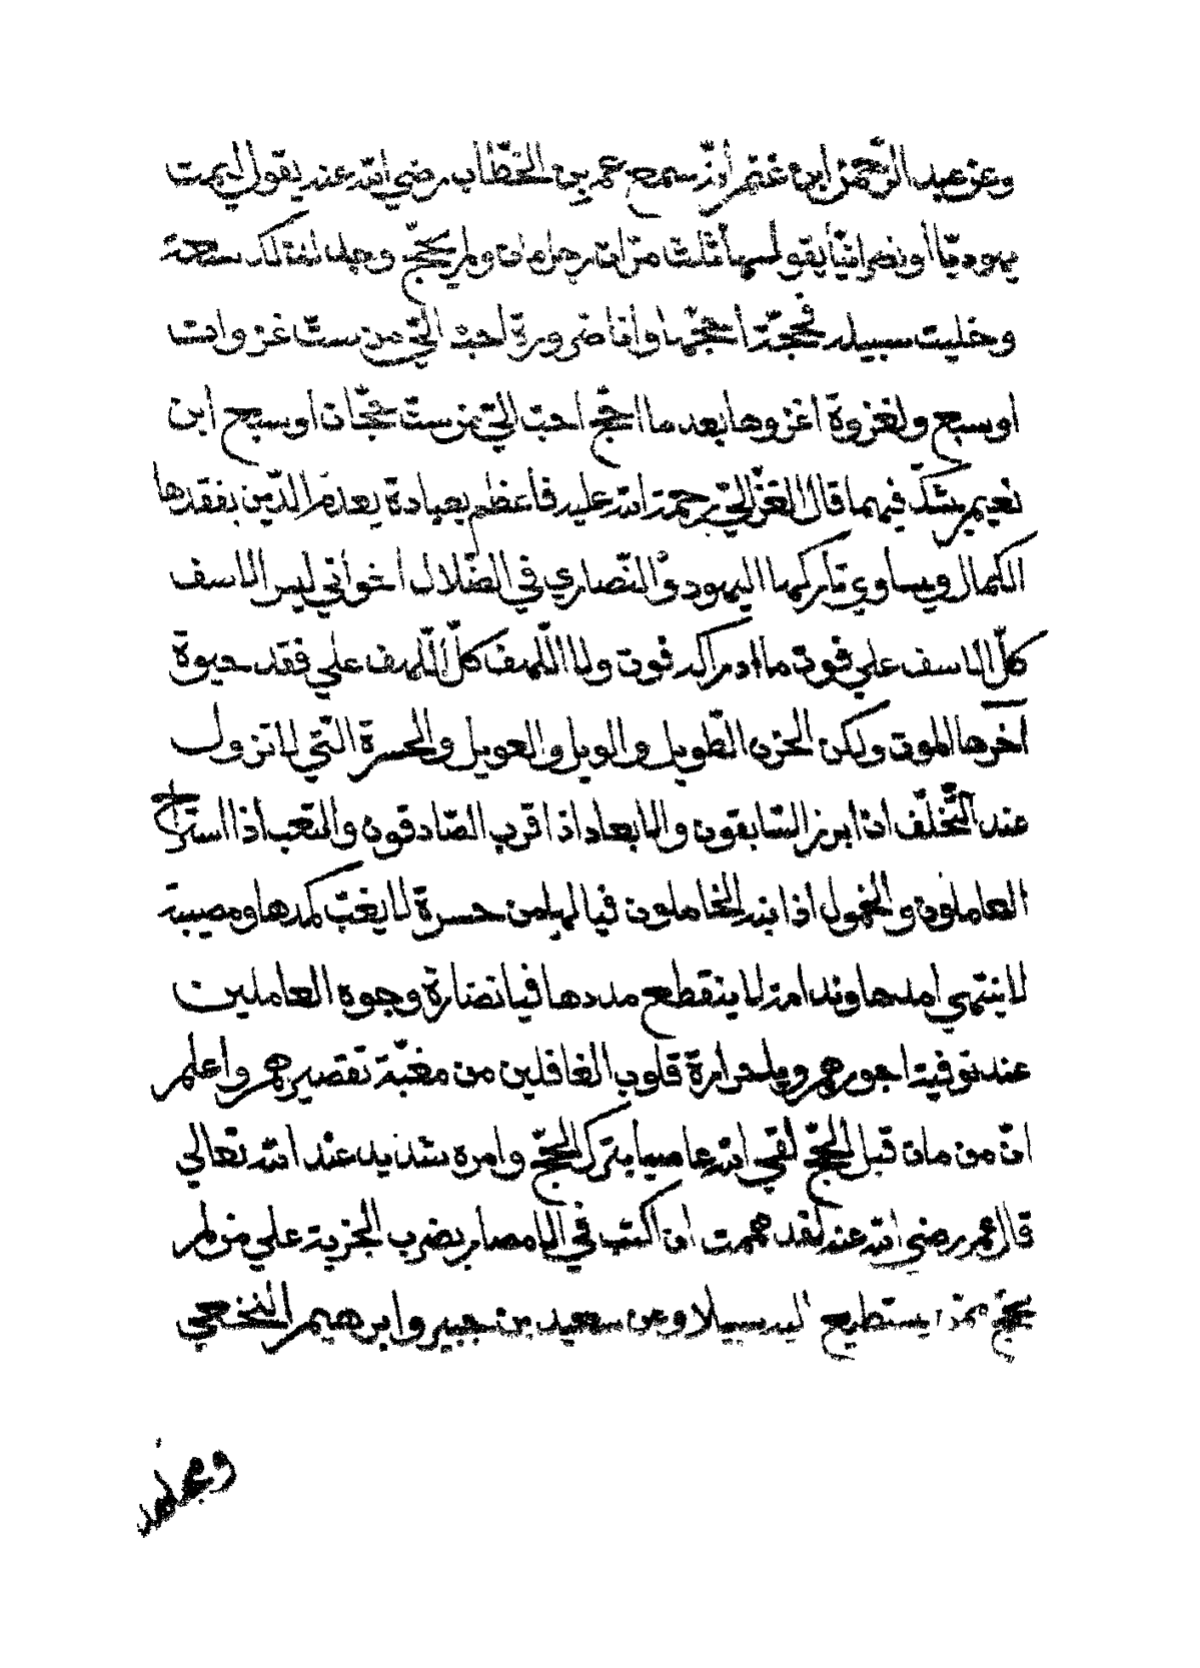 وعن عبد الرّحمن ابن غنم أنّه سمع عمر بن الخطّاب رضي الله عنه يقول ليمت
يهوديّا أو نصرانيّا يقولها ثلث مرّات رجل مات ولم يحجّ وجد لذلك سعة
وخليت سبيله فحجّة احجّها وأنا ضرورة احبّ اليّ من ستّ غزوات
او سبع ولغزوة اغزوها بعد ما احجّ احبّ اليّ من ستّ حجّات او سبع ابن
نعيم يشكّ فيهما قال الغزّاليّ رحمة الله عليه فأعظم بعبادة يعدم الدّين بفقدها
الكمال ويساوي تاركها اليهود والنّصاري في الضّلال اخواني ليس الاسف
كلّ الاسف علي فوت ما ادراكه فوت ولا اللّهف كلّ اللّهف علي فقد حيوة
آخرها الموت ولكن الحزن الطّويل والويل والعويل والحسرة الّتي لا تزول
عند التّخلّف اذا برز السّابقون والابعاد اذا قرب الصّادقون والتعب اذا استراح
العاملون والخمول اذا نبه الخاملون فيا لها من حسرة لا يغبّ كمدها ومصيبة
لا ينتهي امدها وندامة لا ينقطع مددها فيا نضارة وجوه العاملين
عند توفية اجورهم ويا حرارة قلوب الغافلين من مغبّة تقصيرهم واعلم
انّ من مات قبل الحجّ لقي الله عاصيا بترك الحجّ وامره شديد عند الله تعالي
قال عمر رضي الله عنه لقد هممت ان اكتب في الامصار بضرب الجزية علي من لم
يحجّ ممّن يستطيع اليه سبيلا وعن سعيد بن جبير وابرهيم النخعي
ومجاهد